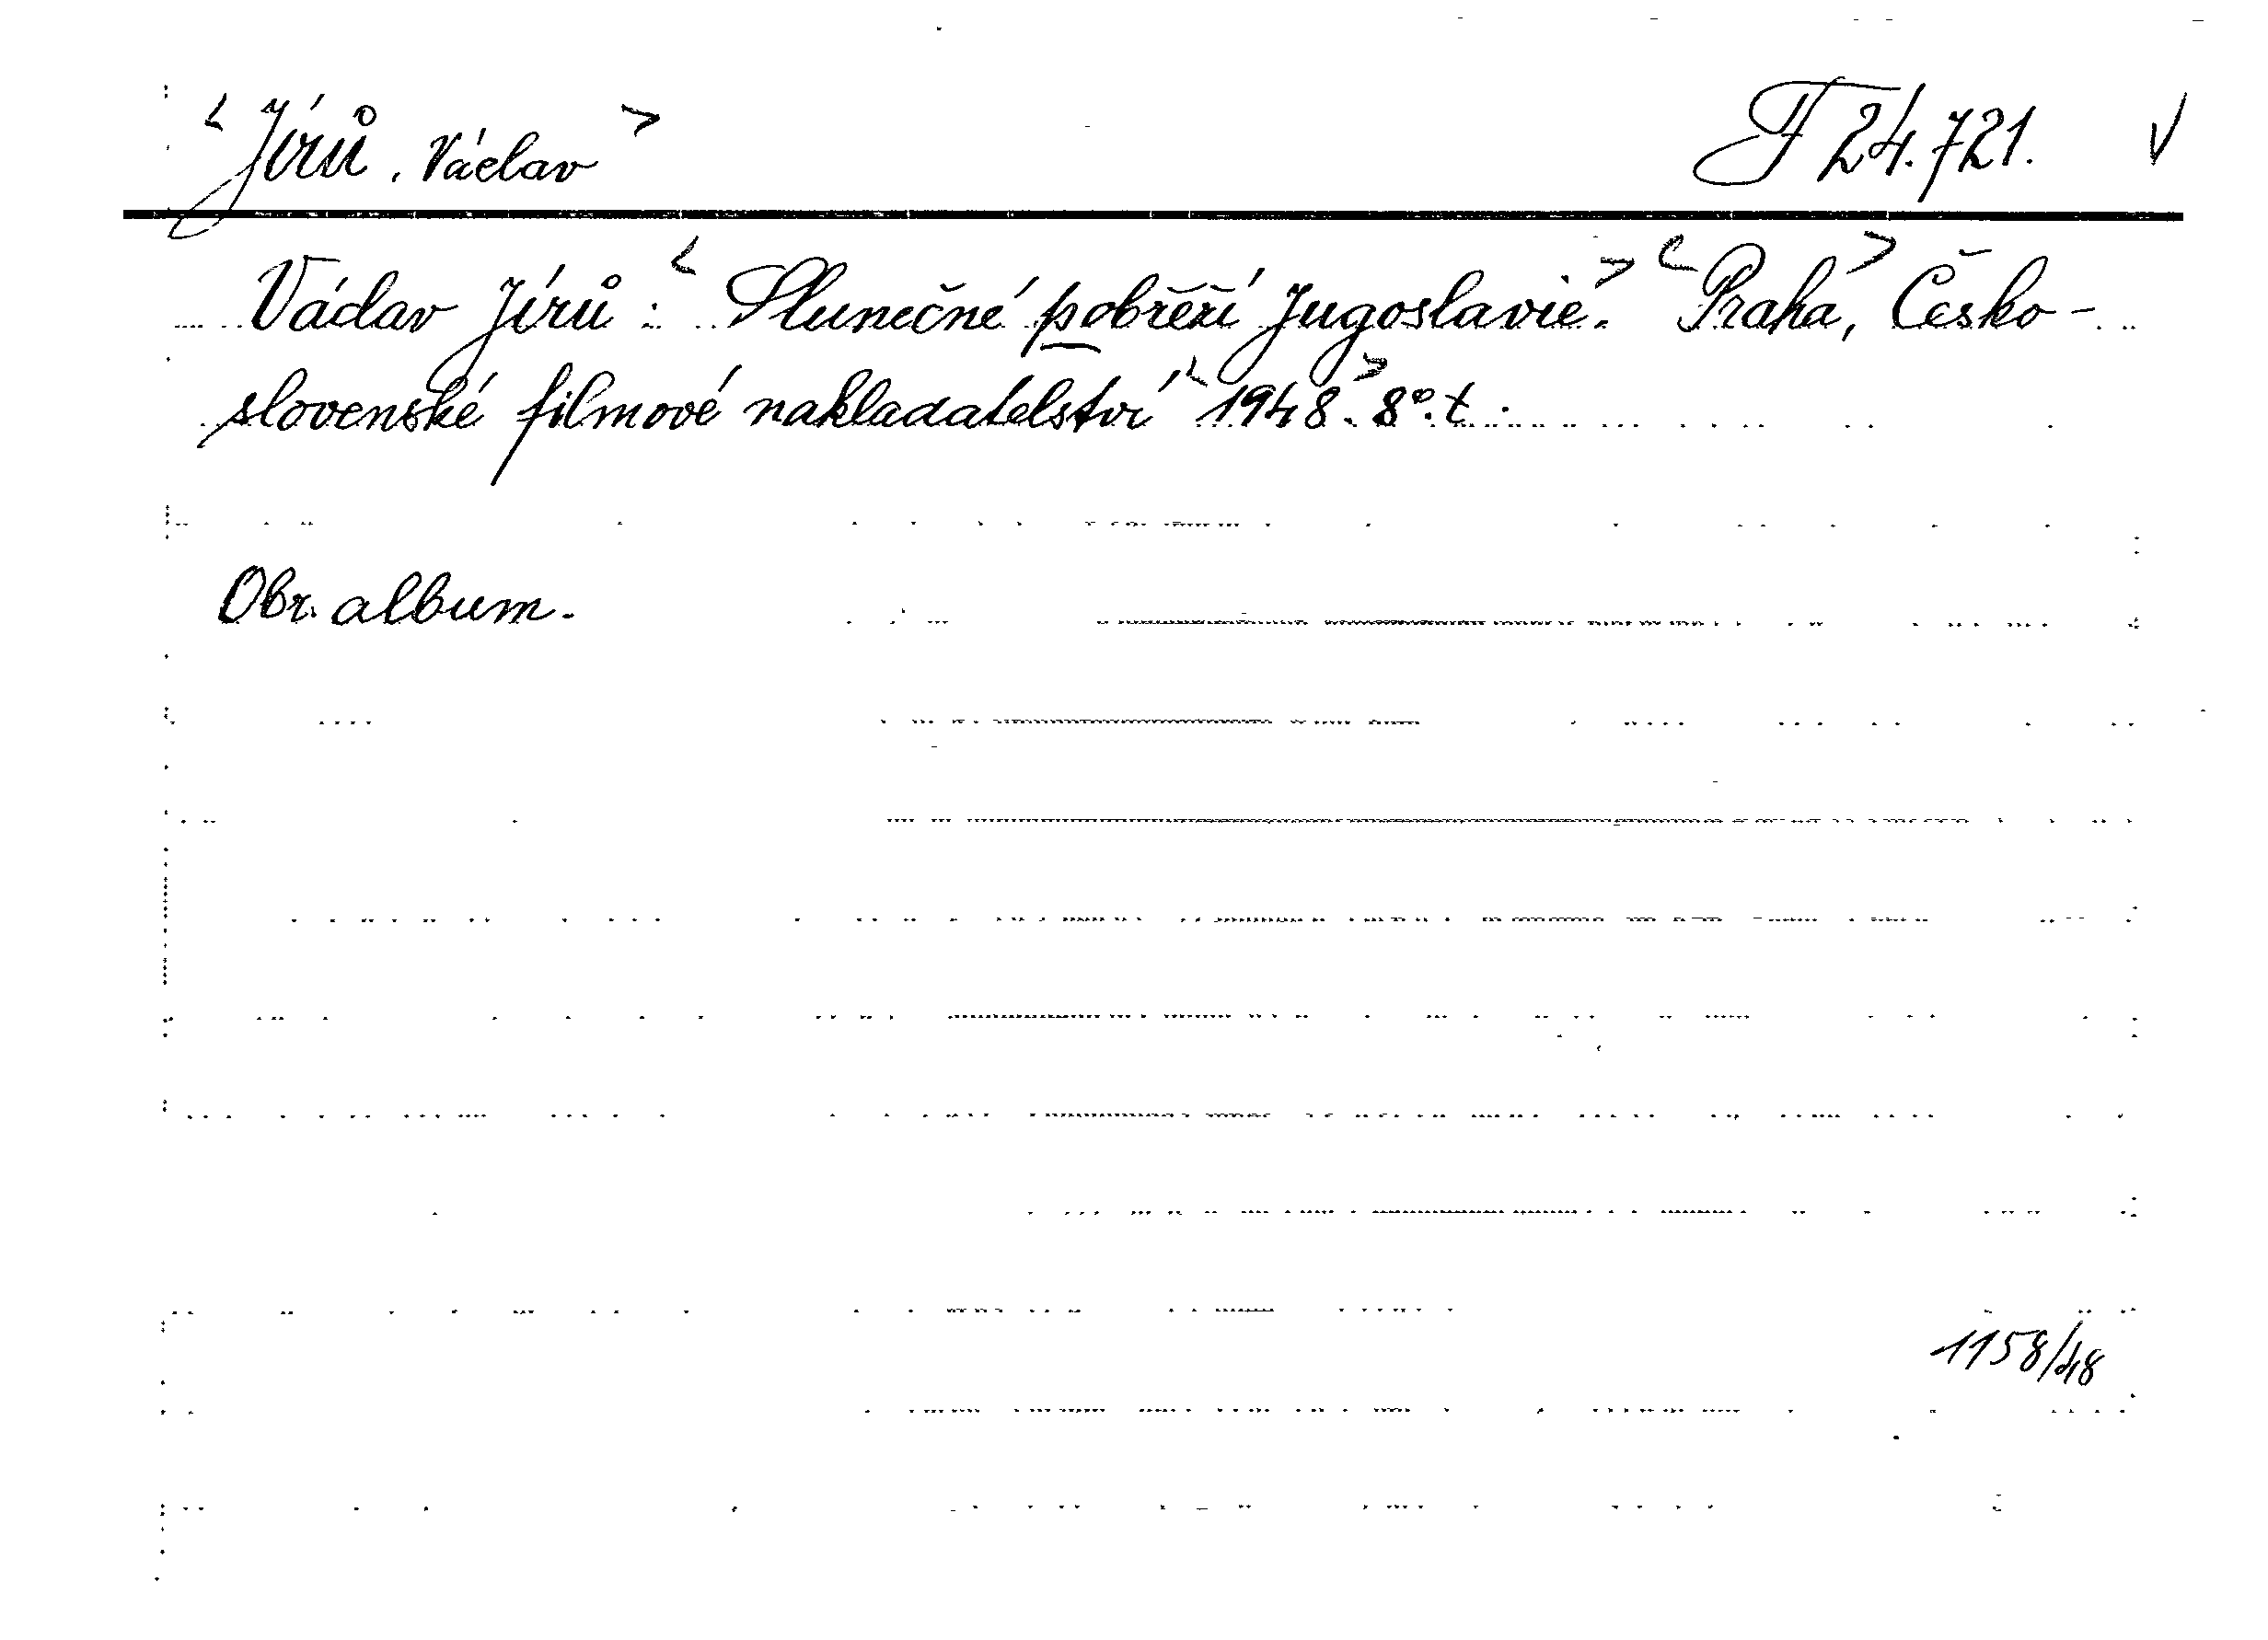 < Jírů, Václav > F 24.721. √
Václav Jírů: < Slunečné pobřeží Jugoslavie. > < Praha, > Česko-
slovenské filmové nakladatelství < 1948. > 8°. t.
Obr. album.
1158/48